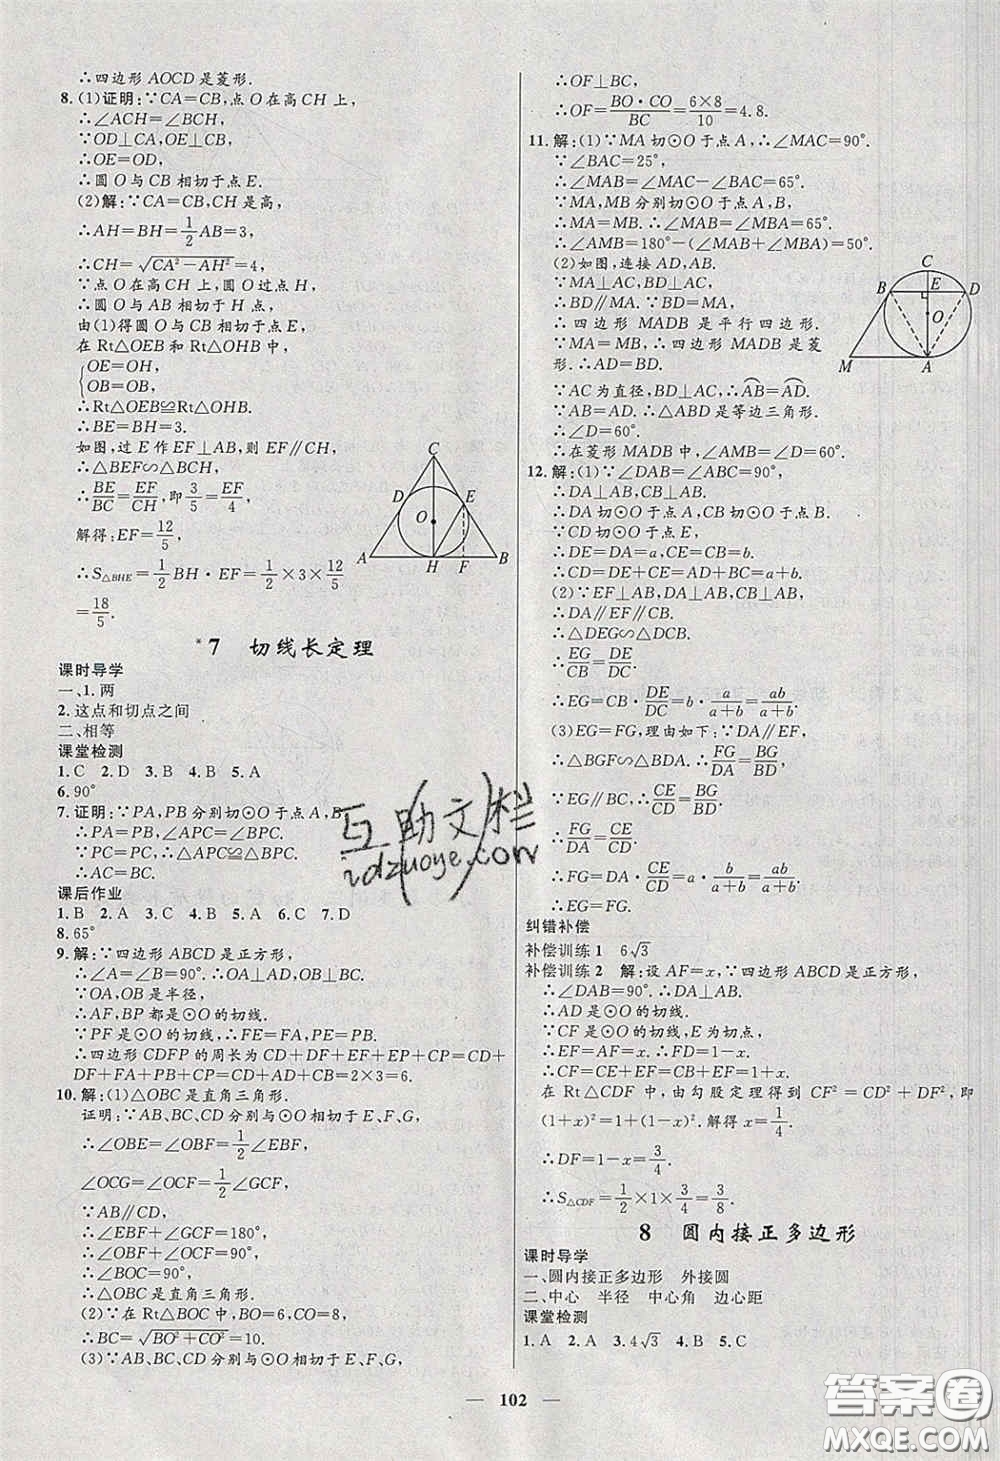 ∴四边形 AOCD 是菱形.
8. (1)证明:∵CA=CB,点 O 在高 CH 上,
∴∠ACH=∠BCH.
∵OD⊥CA,OE⊥CB,
∴OE=OD,
∴圆 O 与 CB 相切于点 E.
(2)解:∵CA=CB,CH 是高,
∴AH=BH=1/2 AB=3,
∴CH=√(CA²-AH²)=4,
∵点 O 在高 CH 上,圆 O 过点 H,
∴圆 O 与 AB 相切于 H 点,
由(1)得圆 O 与 CB 相切于点 E,
在 Rt△OEB 和 Rt△OHB 中,
{OE=OH,
OB=OB,
∴Rt△OEB≌Rt△OHB.
∴BE=BH=3.
如图,过 E 作 EF⊥AB,则 EF∥CH,
∴△BEF∽△BCH.
∴BE/BC=EF/CH,即 3/5=EF/4,
解得:EF=12/5,
∴S△BHE=1/2 BH·EF=1/2×3×12/5
=18/5.
C
D
E
O
A
H
F
B
*7 切线长定理
课时导学
一、1. 两
2. 这点和切点之间
二、相等
课堂检测
1. C 2. D 3. B 4. B 5. A
6. 90°
7. 证明:∵PA,PB 分别切⊙O 于点 A,B
∴PA=PB,∠APC=∠BPC.
∵PC=PC,∴△APC≌△BPC.
∴AC=BC.
课后作业
1. B 2. A 3. A 4. B 5. A 6. C 7. D
8. 65°
9. 解:∵四边形 ABCD 是正方形,
∴∠A=∠B=90°. ∴OA⊥AD,OB⊥BC.
∵OA,OB 是半径,
∴AF,BP 都是⊙O 的切线.
∵PF 是⊙O 的切线,∴FE=FA,PE=PB.
∴四边形 CDFP 的周长为 CD+DF+EF+EP+CP=CD+
DF+FA+PB+CP=CD+DA+CB=2×3=6.
10. 解:(1)△OBC 是直角三角形.
证明:∵AB,BC,CD 分别与⊙O 相切于 E、F、G,
∴∠OBE=∠OBF=1/2∠EBF,
∠OCG=∠OCF=1/2∠GCF,
∵AB∥CD,
∴∠EBF+∠GCF=180°,
∴∠OBF+∠OCF=90°,
∴∠BOC=90°,
∴△OBC 是直角三角形.
(2)∵在 Rt△BOC 中,BO=6,CO=8,
∴BC=√(BO²+CO²)=10.
(3)∵AB、BC、CD 分别与⊙O 相切于 E、F、G,
∴OF⊥BC,
∴OF=BO·CO/BC=6×8/10=4.8.
11. 解:(1)∵MA 切⊙O 于点 A,∴∠MAC=90°.
∵∠BAC=25°,
∴∠MAB=∠MAC-∠BAC=65°.
∵MA,MB 分别切⊙O 于点 A,B,
∴MA=MB. ∴∠MAB=∠MBA=65°.
∴∠AMB=180°-(∠MAB+∠MBA)=50°.
(2)如图,连接 AD,AB.
∵MA⊥AC,BD⊥AC,
∴BD∥MA. ∵BD=MA,
∴四边形 MADB 是平行四边形.
∵MA=MB,∴四边形 MADB 是菱
形. ∴AD=BD.
∵AC 为直径,BD⊥AC,∴⌒AB=⌒AD.
∴AB=AD. ∴△ABD 是等边三角形.
∴∠D=60°.
∴在菱形 MADB 中,∠AMB=∠D=60°.
C
B
E
D
O
M
A
12. 解:(1)∵∠DAB=∠ABC=90°,
∴DA⊥AB,CB⊥AB.
∴DA切⊙O于点 A,CB切⊙O于点 B.
∵CD 切⊙O于点 E,
∴DE=DA=a,CE=CB=b.
∴CD=DE+CE=AD+CB=a+b.
(2)∵EF⊥AB,DA⊥AB,CB⊥AB,
∴DA∥EF∥CB.
∴△DEG∽△DCB.
∴EG/CB=DE/DC.
∴EG=CB·DE/DC=b·a/(a+b)=ab/(a+b).
(3)EG=FG,理由如下:∵DA∥EF,
∴△BFG∽△BDA. ∴FG/DA=BG/BD.
∵EG∥BC,∴CE/CD=BG/BD.
∴FG/DA=CE/CD.
∴FG=DA·CE/CD=a·b/(a+b)=ab/(a+b).
∴EG=FG.
纠错补偿
补偿训练 1 6√3
补偿训练 2 解:设 AF=x,∵四边形 ABCD 是正方形,
∴∠DAB=90°. ∴DA⊥AB.
∴AD 是⊙O 的切线.
∵CF 是⊙O 的切线,E为切点,
∴EF=AF=x. ∴FD=1-x.
∴CF=CE+EF=CB+EF=1+x.
在 Rt△CDF 中,由勾股定理得到 CF²=CD²+DF²,即
(1+x)²=1+(1-x)². 解得 x=1/4.
∴DF=1-x=3/4.
∴S△CDF=1/2×1×3/4=3/8.
8 圆内接正多边形
课时导学
一、圆内接正多边形 外接圆
二、中心 半径 中心角 边心距
课堂检测
1. A 2. A 3. 4√3 4. B 5. C
— 102 —
互助文档
idzuoye.com
答案圈
MXQE.COM